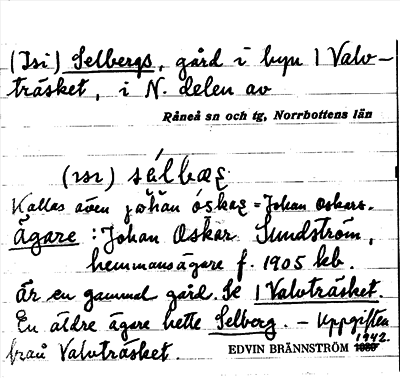 (Isi) Selbergs, gård i byn 1 Valv-
träsket, i N. delen av
Råneå sn och tg, Norrbottens län
(ısı) sélbæʂ
Kallas även jòhan óskaʂ = Johan Oskars.
Ägare: Johan Oskar Sundström,
hemmansägare f. 1905 kb.
Är en gammal gård. Se 1 Valvträsket.
En äldre ägare hette Selberg. - Uppgiften
från Valvträsket. EDVIN BRÄNNSTRÖM 1942.